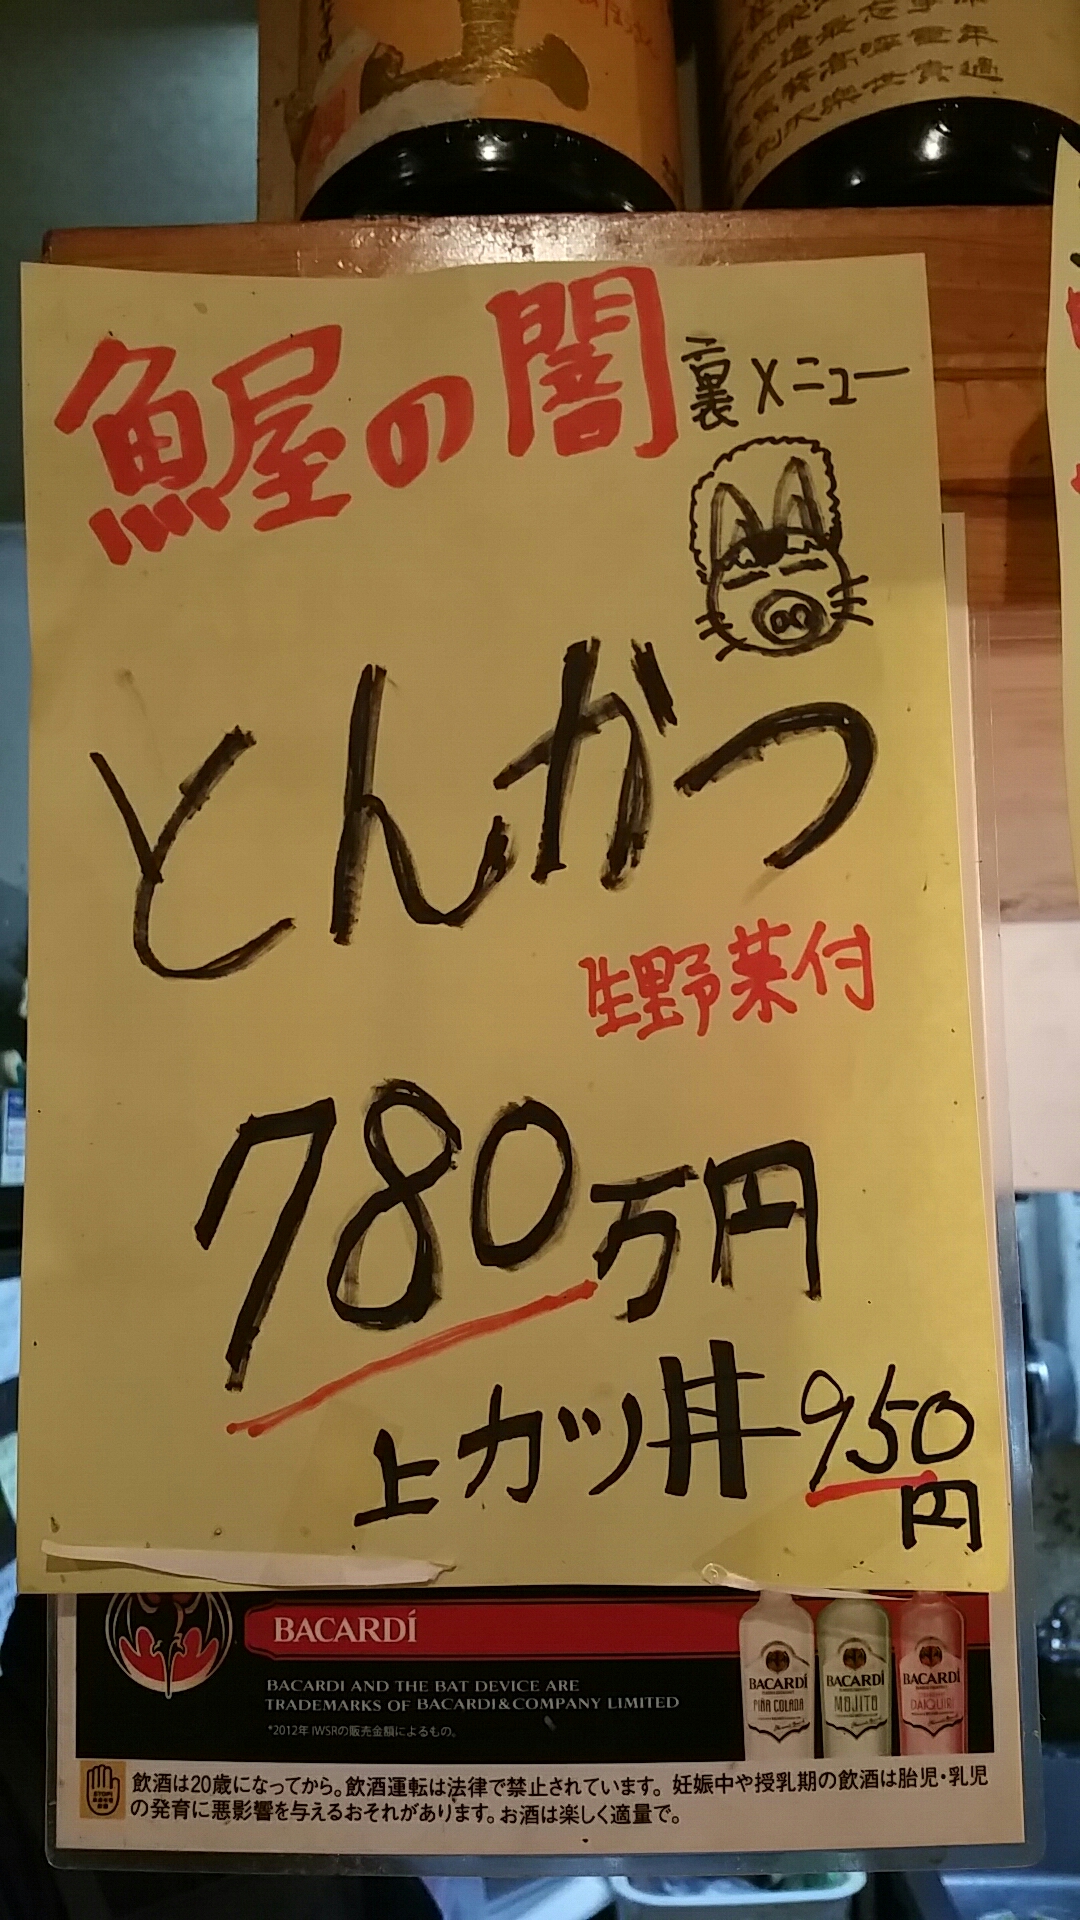 魚屋の闇
裏メニュー
とんかつ
生野菜付
780万円
上カツ丼 950円
BACARDÍ
BACARDI AND THE BAT DEVICE ARE
TRADEMARKS OF BACARDI&COMPANY LIMITED
*2012年 IWSRの販売金額によるもの。
BACARDÍ
PIÑA COLADA
BACARDÍ
MOJITO
BACARDÍ
DAIQUIRI
飲酒は20歳になってから。飲酒運転は法律で禁止されています。妊娠中や授乳期の飲酒は胎児・乳児
の発育に悪影響を与えるおそれがあります。お酒は楽しく適量で。